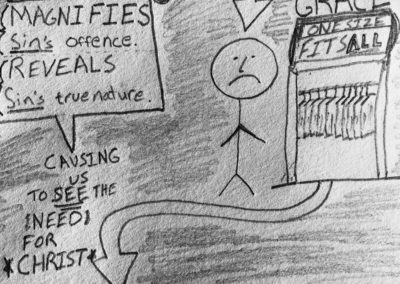 MAGNIFIES
Sin's offence.
REVEALS
Sin's true nature.
CAUSING
US
TO SEE THE
!NEED!
FOR
*CHRIST*
GRACE
ONE SIZE
FITS ALL